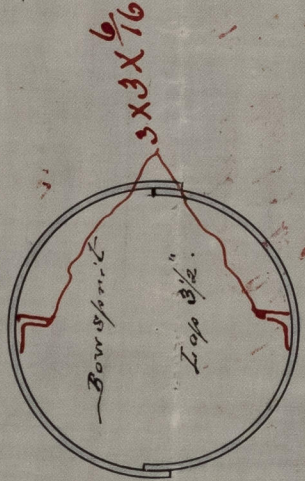 3 x 3 x 6/16
Bowsprit
Lap 3½".